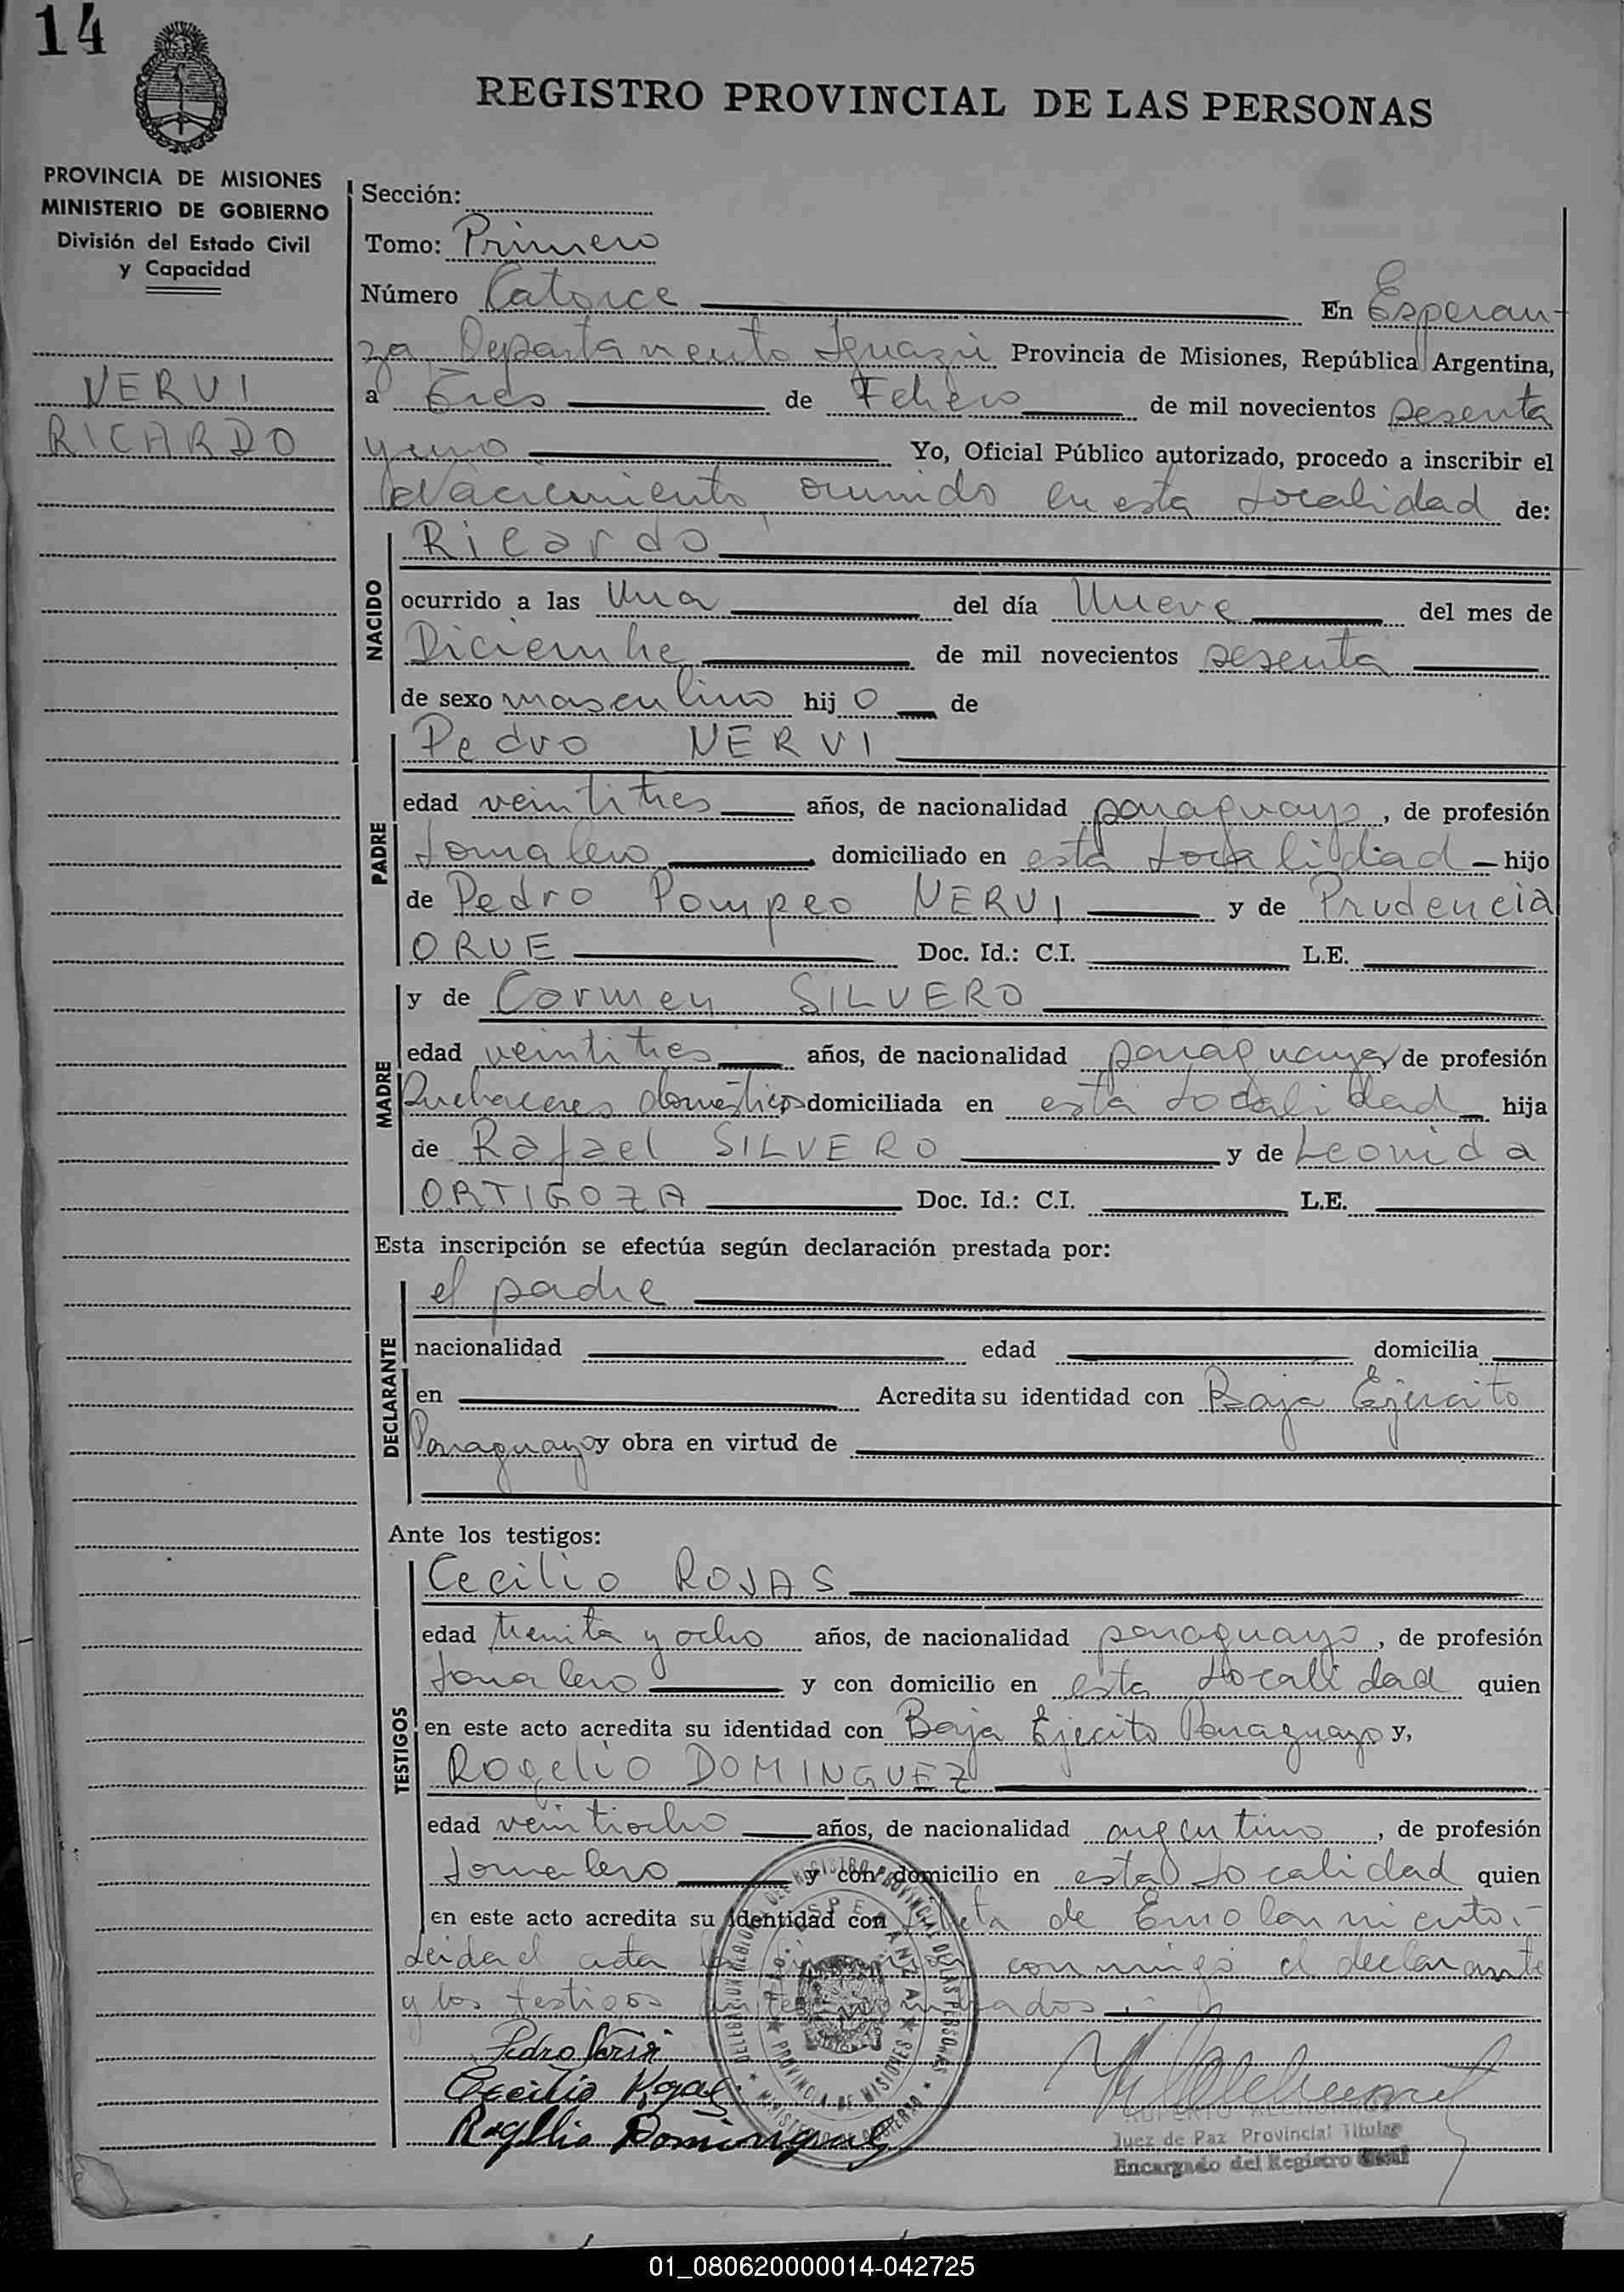 14
REGISTRO PROVINCIAL DE LAS PERSONAS
PROVINCIA DE MISIONES
MINISTERIO DE GOBIERNO
División del Estado Civil
y Capacidad
NERVI
RICARDO
Sección:
Tomo: Primero
Número Catorce En Esperan-
za, Departamento Iguazú Provincia de Misiones, República Argentina,
a Tres de Febrero de mil novecientos sesenta
y uno Yo, Oficial Público autorizado, procedo a inscribir el
Nacimiento, ocurrido en esta Localidad de:
NACIDO
Ricardo
ocurrido a las Una del día Nueve del mes de
Diciembre de mil novecientos sesenta
de sexo masculino hijo de
PADRE
Pedro NERVI
edad veintitres años, de nacionalidad paraguayo, de profesión
Jornalero domiciliado en esta Localidad hijo
de Pedro Pompeo NERVI y de Prudencia
ORUE Doc. Id.: C.I. L.E.
MADRE
y de Carmen SILVERO
edad veintitres años, de nacionalidad paraguaya, de profesión
Quehaceres domésticos domiciliada en esta Localidad hija
de Rafael SILVERO y de Leonida
ORTIGOZA Doc. Id.: C.I. L.E.
Esta inscripción se efectúa según declaración prestada por:
DECLARANTE
el padre
nacionalidad edad domicilia
en Acredita su identidad con Baja Ejército
Paraguayo y obra en virtud de
Ante los testigos:
TESTIGOS
Cecilio ROJAS
edad treinta y ocho años, de nacionalidad paraguayo, de profesión
Jornalero y con domicilio en esta Localidad quien
en este acto acredita su identidad con Baja Ejécito Paraguayo y,
Rogelio DOMINGUEZ
edad veintiocho años, de nacionalidad argentino, de profesión
Jornalero y con domicilio en esta Localidad quien
en este acto acredita su identidad con Libreta de Enrolamiento.-
Leida el acta conmigo el declarante
y los testigos
Pedro Nervi
Cecilio Rojas
Rogelio Dominguez
Juez de Paz Provincial Titular
Encargado del Registro Civil
DELEGACION REGIONAL DEL REGISTRO PROVINCIAL DE LAS PERSONAS
ESPERANZA
PROVINCIA DE MISIONES
MINISTERIO DE GOBIERNO
01_080620000014-042725